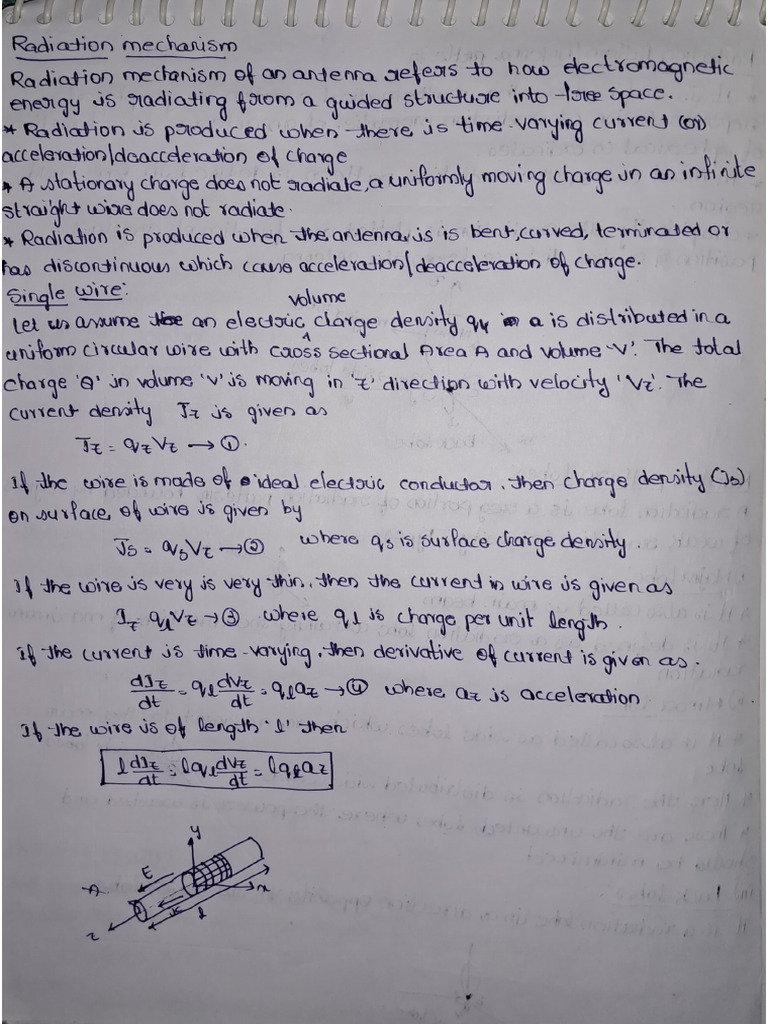 Radiation mechanism
Radiation mechanism of an antenna refers to how electromagnetic
energy is radiating from a guided structure into free space.
* Radiation is produced when there is time-varying current (or)
acceleration/deacceleration of charge
* A stationary charge does not radiate, a uniformly moving charge in an infinite
straight wire does not radiate.
* Radiation is produced when the antenna is is bent, curved, terminated or
has discontinuous which cause acceleration/deacceleration of charge.
Single wire:
volume
Let us assume an electric charge density qv a is distributed in a
uniform circular wire with cross sectional Area A and volume 'V'. The total
charge 'Q' in volume 'V' is moving in 'z' direction with velocity 'Vz'. The
current density Jz is given as
Jz = qzVz → ①.
If the wire is made of ideal electric conductor, then charge density (Js)
on surface of wire is given by
Js = qsVz → ② where qs is surface charge density.
If the wire is very is very thin, then the current in wire is given as
Iz qlVz → ③ where ql is charge per unit length.
If the current is time-varying, then derivative of current is given as.
dIz/dt = ql dVz/dt = ql az → ④ where az is acceleration
If the wire is of length 'l' then
l dIz/dt = lql dVz/dt = lql az
y
E
A
x
z
l